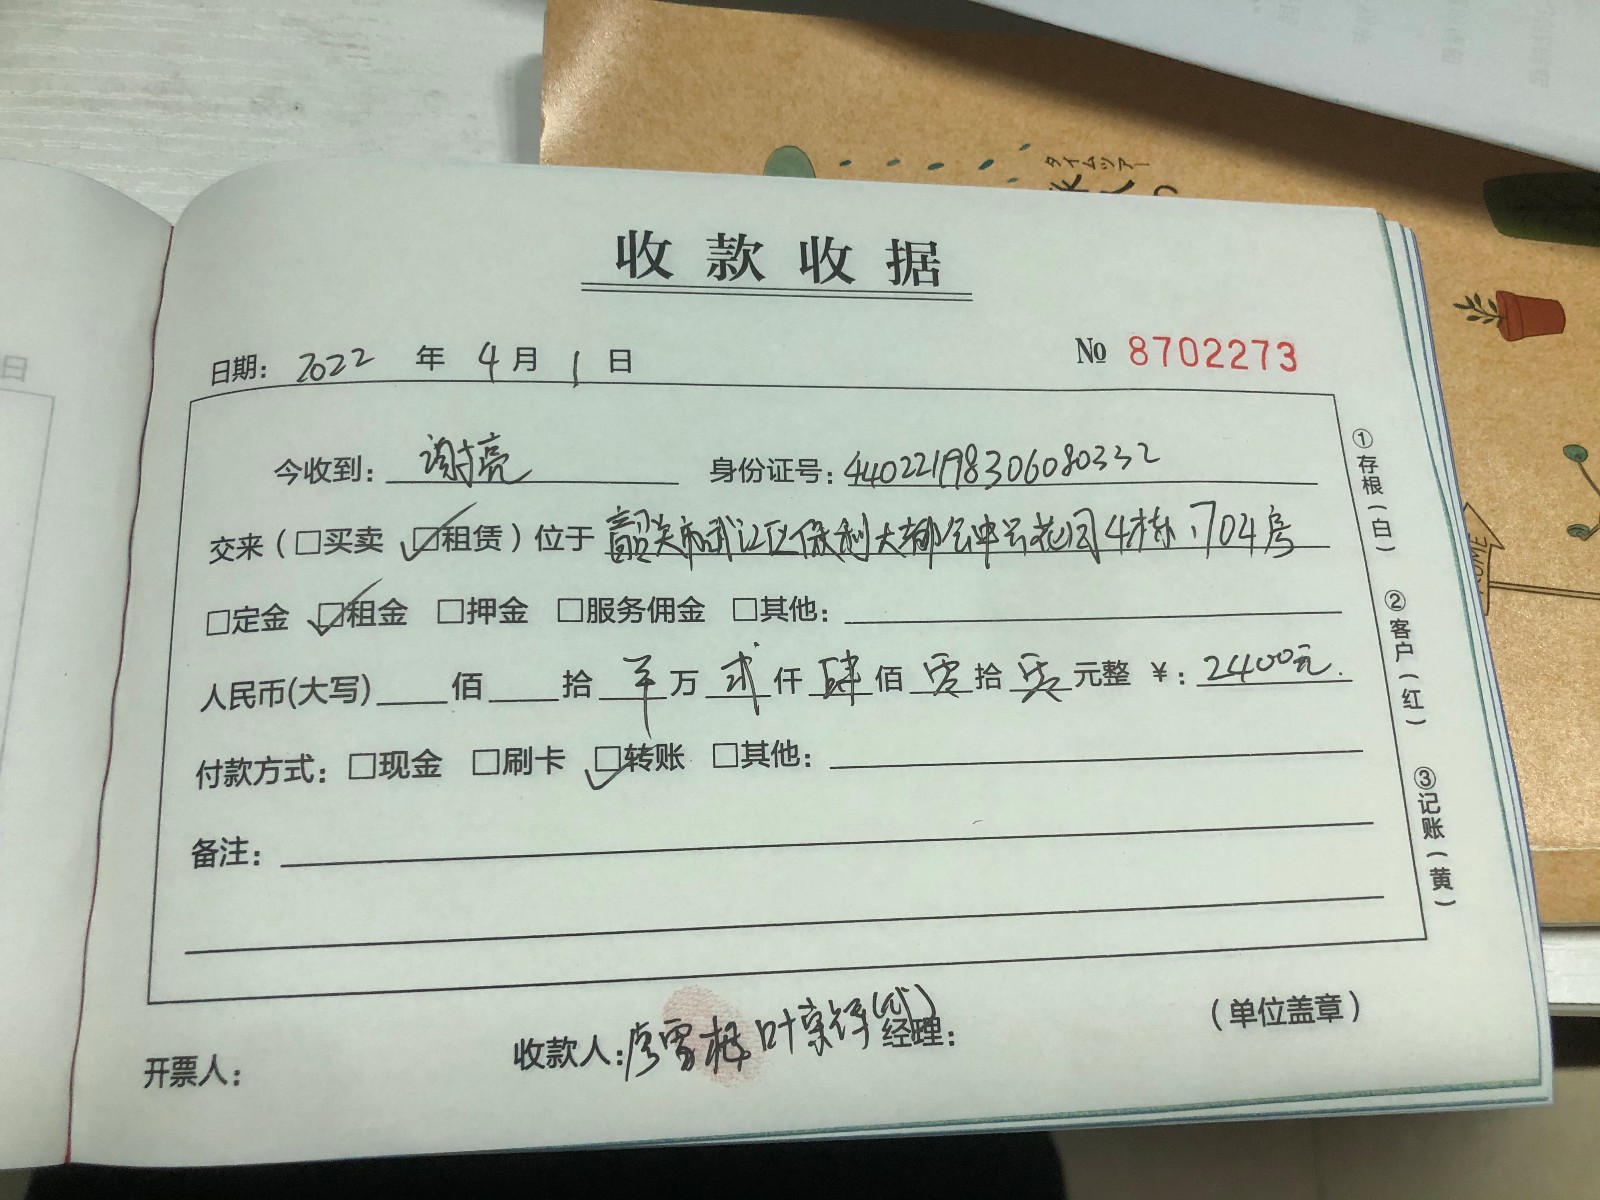 タイムツアー
收款收据
日期: 2022 年 4 月 1 日 № 8702273
今收到: 谢亮 身份证号: 440221198306080332
交来(□买卖 ☑租赁)位于 韶关市武江区保利大都会中兴花园4栋1704房
□定金 ☑租金 □押金 □服务佣金 □其他:
人民币(大写) 佰 拾 万 贰仟 肆佰 零拾 零元整 ¥: 2400元.
付款方式: □现金 □刷卡 ☑转账 □其他:
备注:
①存根(白)
②客户(红)
③记账(黄)
开票人: 收款人: 叶 (代) 经理: (单位盖章)
日
HOME